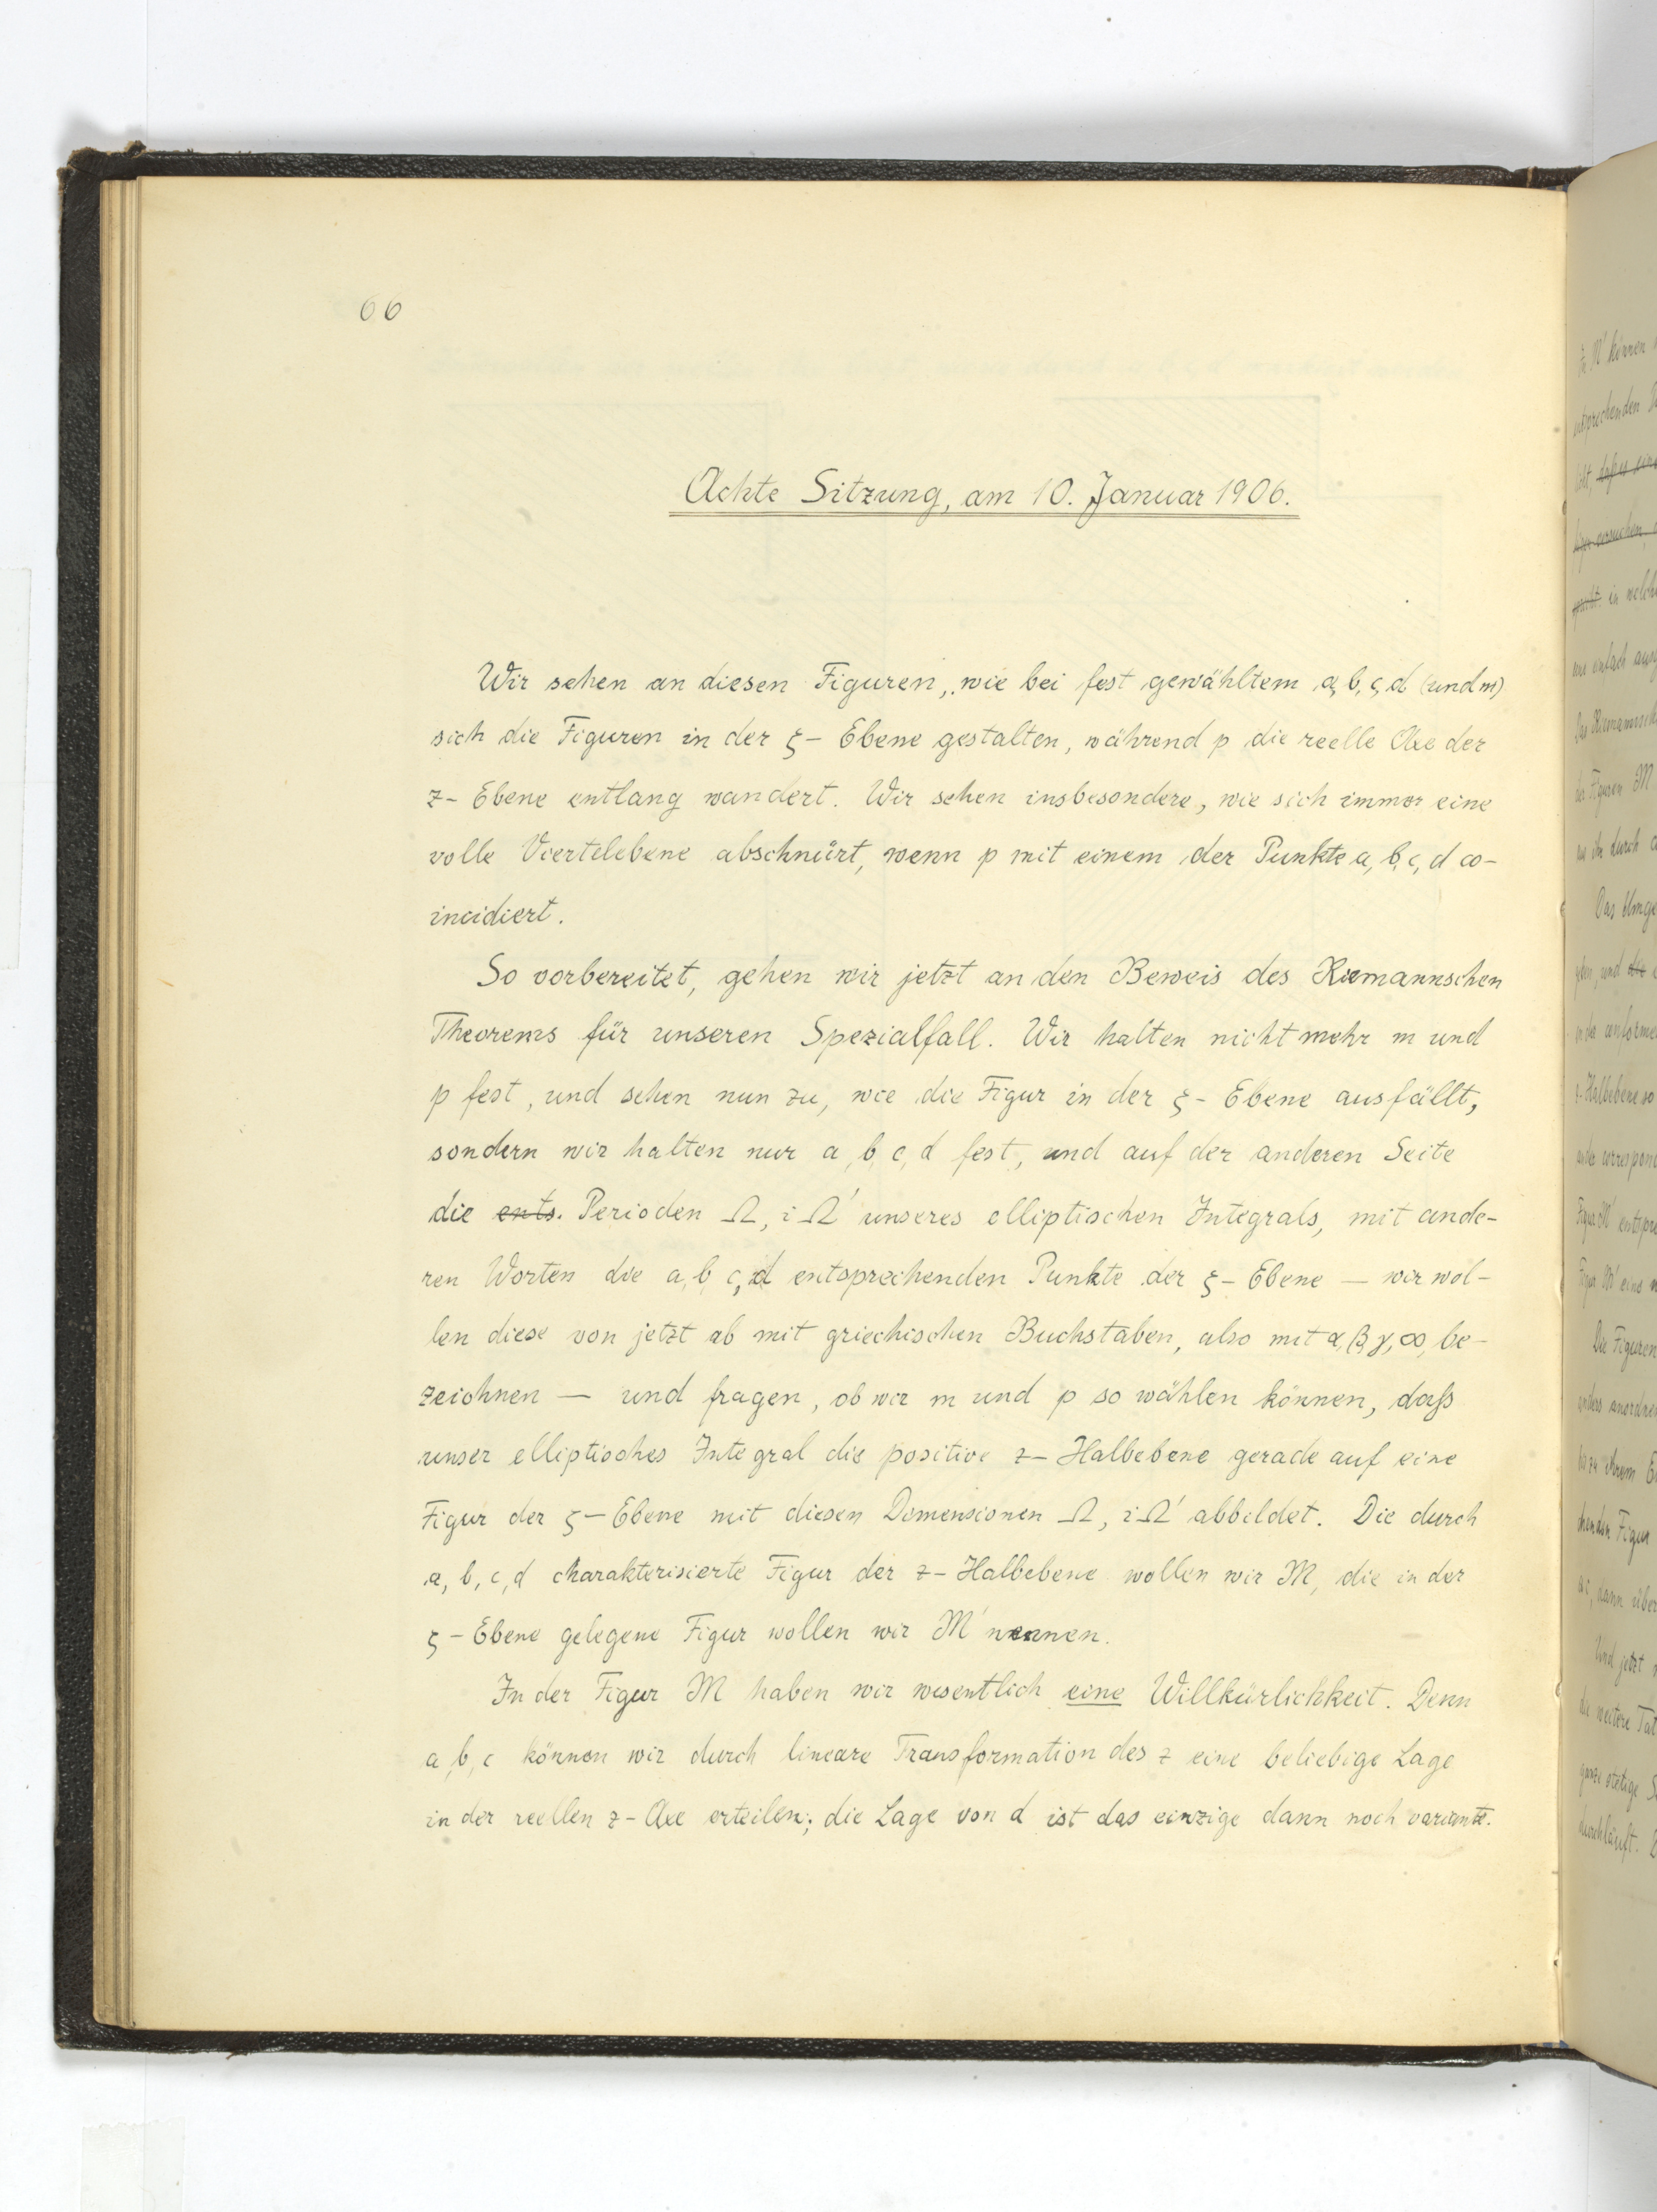 66
Achte Sitzung, am 10. Januar 1906.
Wir sehen an diesen Figuren, wie bei fest gewähltem a, b, c, d (und m)
sich die Figuren in der ζ- Ebene gestalten, während p die reelle Axe der
z- Ebene entlang wandert. Wir sehen insbesondere, wie sich immer eine
volle Viertelebene abschnürt, wenn p mit einem der Punkte a, b, c, d co-
incidiert.
So vorbereitet, gehen wir jetzt an den Beweis des Riemannschen
Theorems für unseren Spezialfall. Wir halten nicht mehr m und
p fest, und sehen nun zu, wie die Figur in der ζ- Ebene ausfällt,
sondern wir halten nur a, b, c, d fest, und auf der anderen Seite
die ents. Perioden Ω, iΩ' unseres elliptischen Integrals, mit ande-
ren Worten die a, b, c, d entsprechenden Punkte der ζ- Ebene — wir wol-
len diese von jetzt ab mit griechischen Buchstaben, also mit α, β, γ, ∞, be-
zeichnen — und fragen, ob wir m und p so wählen können, daß
unser elliptisches Integral die positive z- Halbebene gerade auf eine
Figur der ζ- Ebene mit diesen Dimensionen Ω, iΩ' abbildet. Die durch
a, b, c, d charakterisierte Figur der z- Halbebene wollen wir M, die in der
ζ- Ebene gelegene Figur wollen wir M' nennen.
In der Figur M haben wir wesentlich eine Willkürlichkeit. Denn
a, b, c können wir durch lineare Transformation des z eine beliebige Lage
in der reellen z- Axe erteilen; die Lage von d ist das einzige dann noch variante.